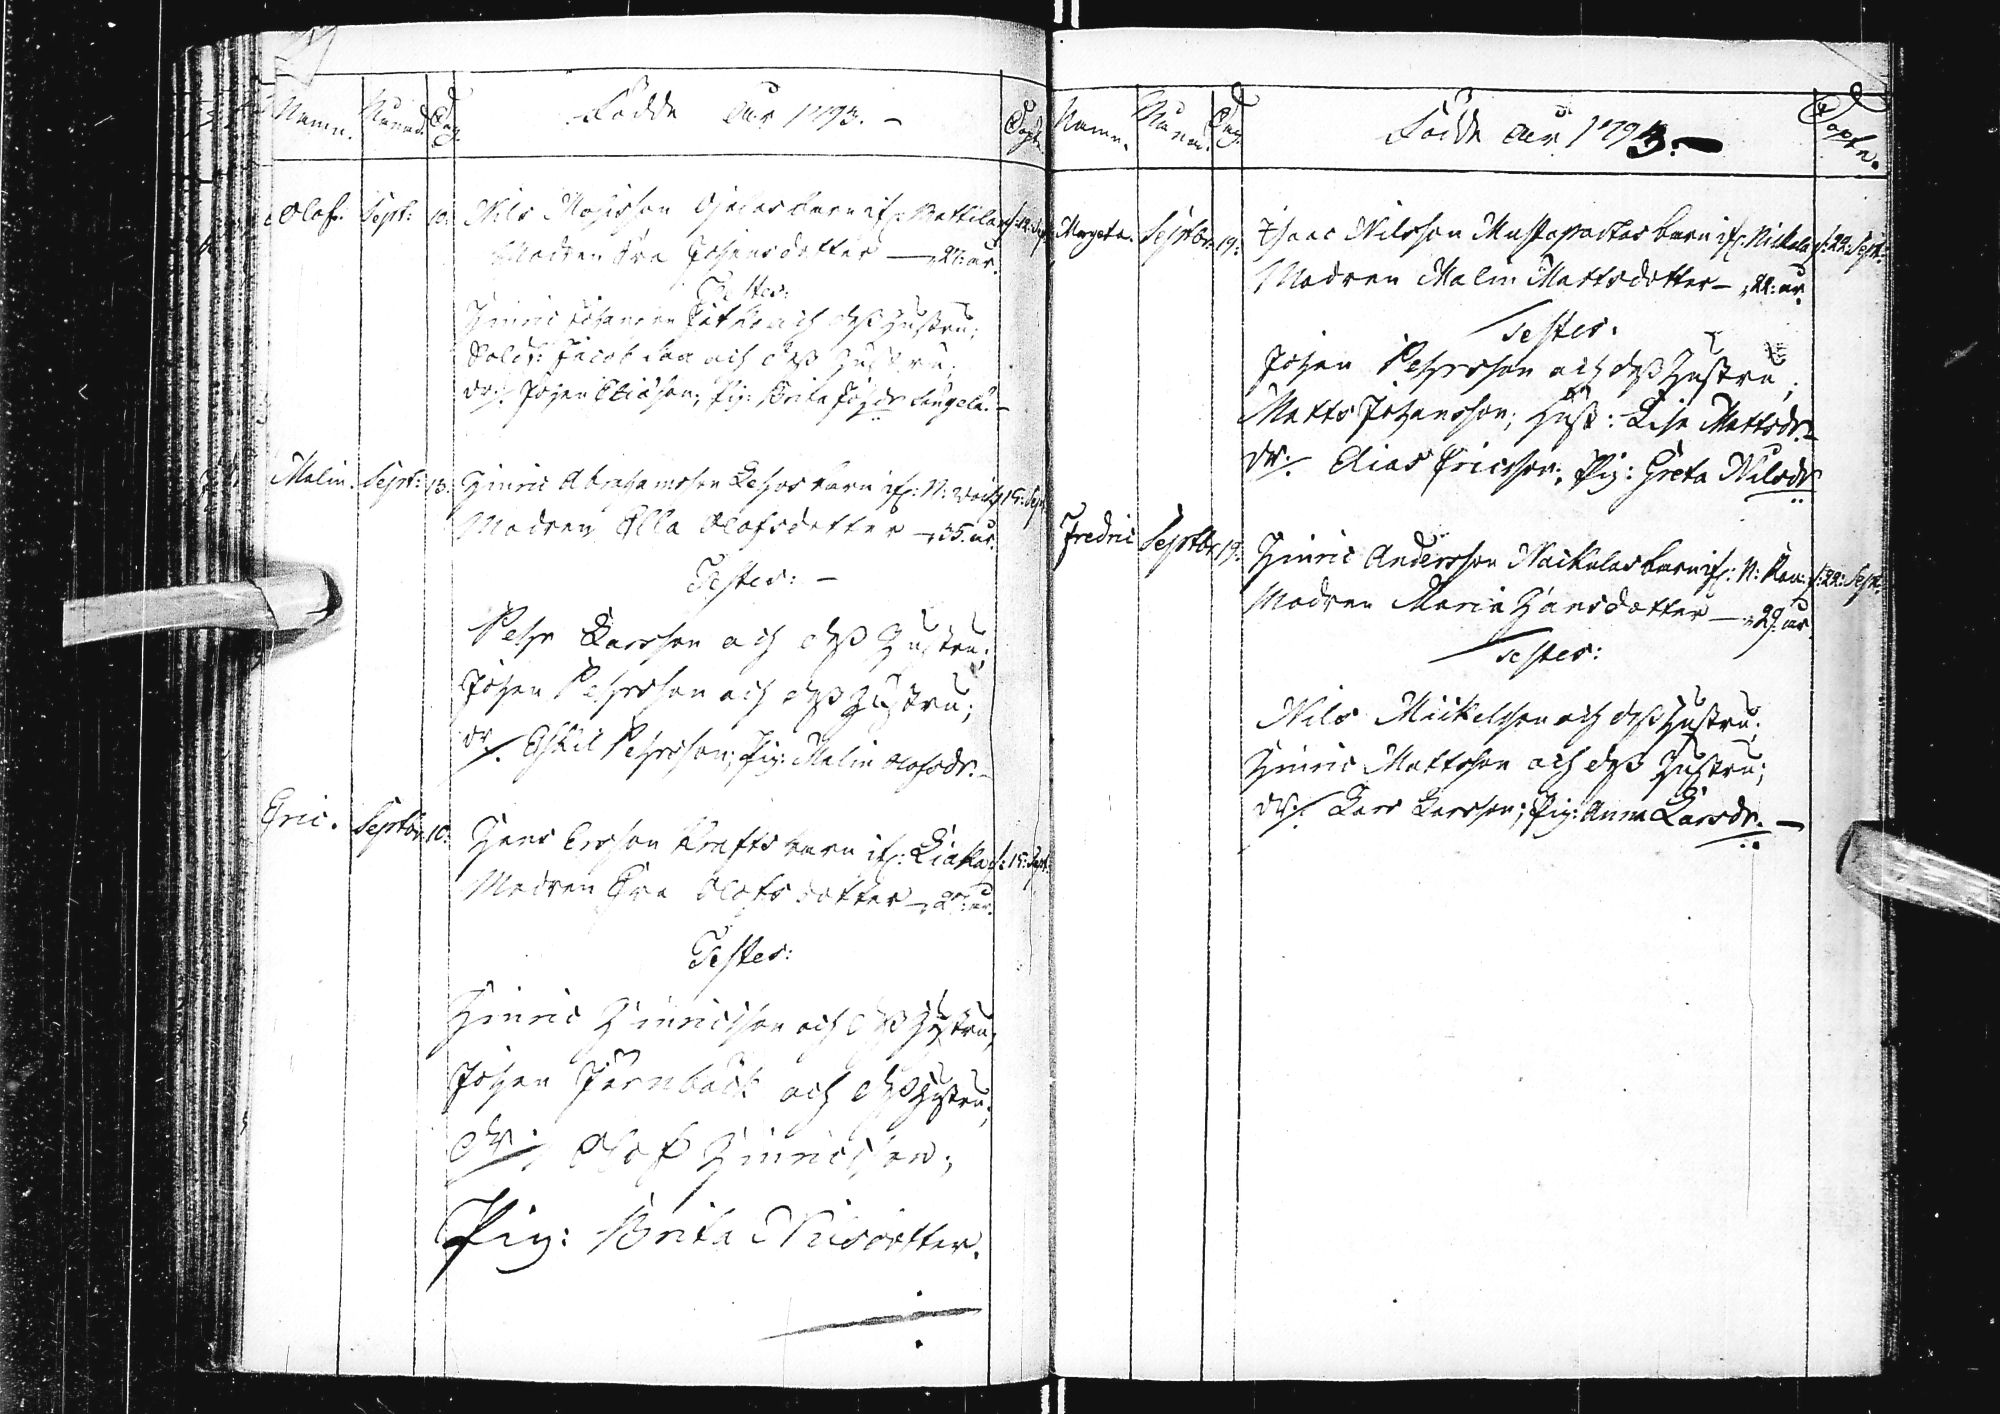 Namn. Månad. Dag. Födde Åhr 1793. - Döpte
Olof. Sept: 10. Nils Matsson barn if:
Modren Eva Johansdotter — 27: år.
Testes:
Hinric Johansson och dess Hustru;
Sold: Jacob och dess Hustru;
dr:/. Johan Ericsson; Pig: Brita Johsdr
Malin. Sept: 13. Hinric Abrahamsson barn if: N: 15: Sept
Modren Ella Olofsdotter — 35. år.
Testes: -
Pehr Larsson och dess Hustru;
Johan Pehrsson och dess Hustru;
dr:/. Eskil Pehrsson; Pig: Malin Olofsdr. -
Eric. Septbr 10: Hans Ersson Krafts barn if: 15: Sept:
Modren Eva Olofsdotter — 27: år.
Testes:
Hinric Hinricsson och dess Hustru;
Johan Järnbäck och dess Hustru;
dr:/. Olof Hinricsson;
Pig: Brita Nilsdotter.
Namn. Månad. Dag. Födde Åhr 1793. - Döpte.
Margeta. Septbr: 19: Isaac Nilsson barn if: 22: Sept:
Modren Malin Mattsdotter - 22: år.
Testes:
Johan Pehrsson och dess Hustru;
Matts Johansson; Hust: Lisa Mattsdr. -
dr:/. Elias Ericsson; Pig: Greta Nilsdr
Fredric Septbr 19: Hinric Andersson barn if: N: 22: Sept:
Modren Maria Hansdotter — 29: år.
Testes:
Nils Mickelsson och dess Hustru;
Hinric Mattsson och dess Hustru;
dr:/. Lars Larsson; Pig: Anna Larsdr. —